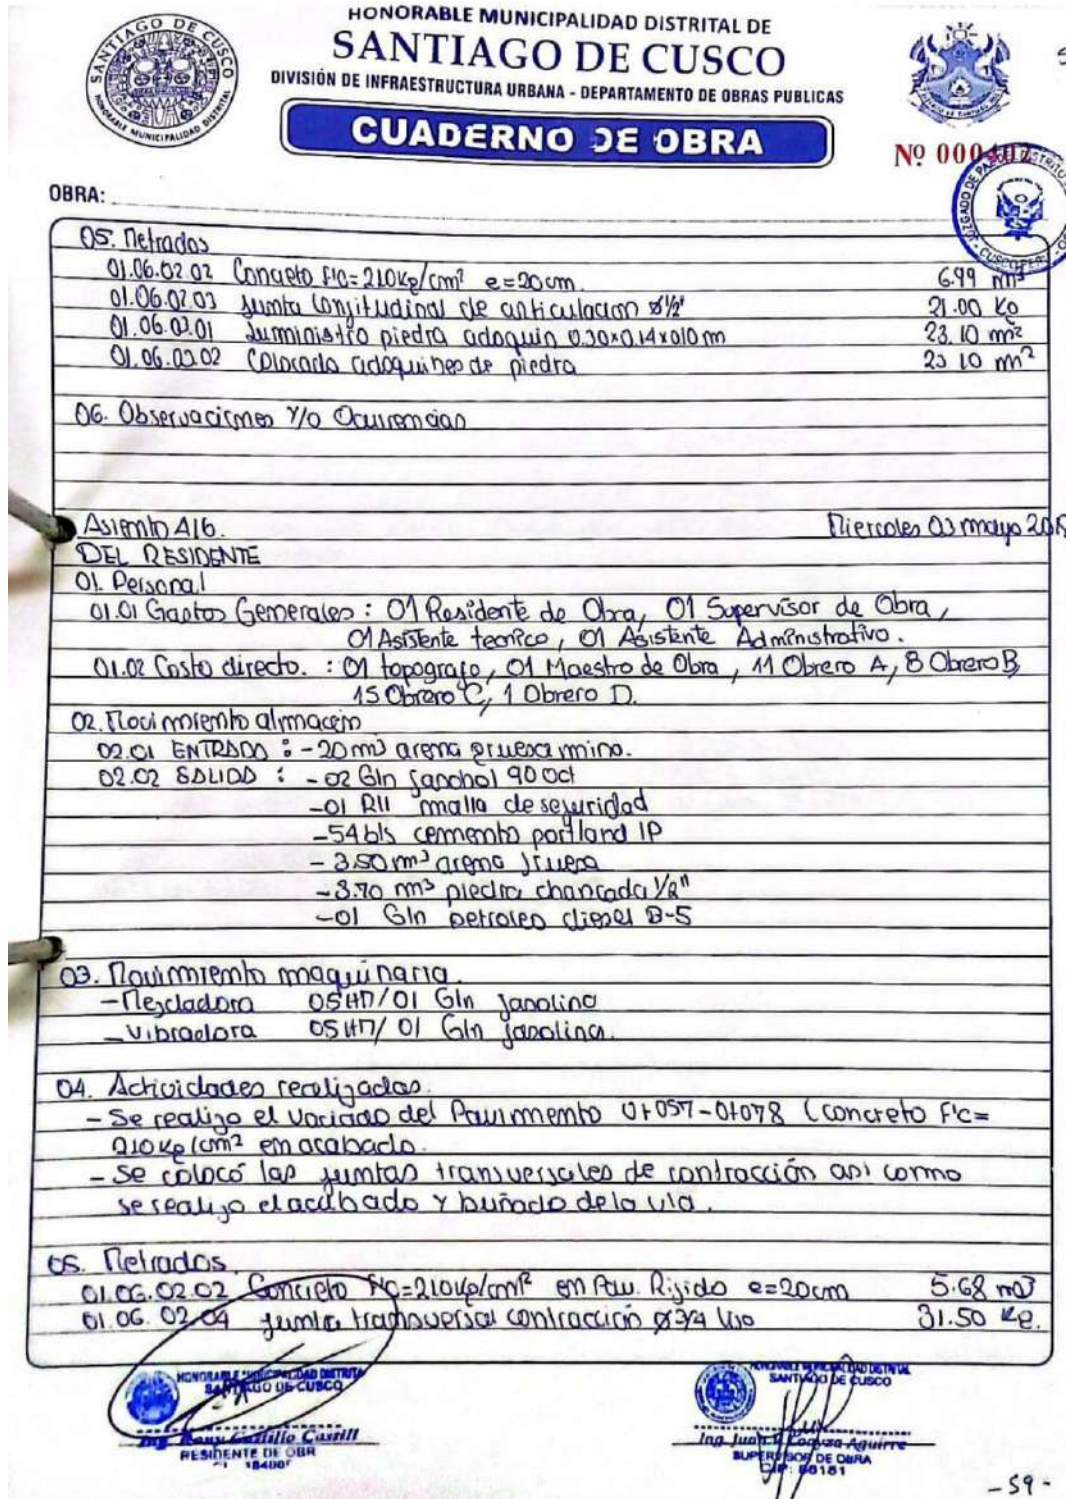 HONORABLE MUNICIPALIDAD DISTRITAL DE
SANTIAGO DE CUSCO
DIVISIÓN DE INFRAESTRUCTURA URBANA - DEPARTAMENTO DE OBRAS PUBLICAS
CUADERNO DE OBRA
Nº 000402
OBRA:
05. Metrados
01.06.02.02 Concreto F'C=210Kg/cm² e=20cm. 6.99 m³
01.06.02.03 Junta longitudinal de articulacion ø½" 21.00 Kg
01.06.03.01 Suministro piedra adoquin 0.30x0.14x010m 23.10 m²
01.06.03.02 Colocado adoquines de piedra 23 10 m²
06. Observaciones Y/o Ocurrencias
Asiento 416. Miercoles 03 mayo
DEL RESIDENTE
01. Personal
01.01 Gastos Generales : 01 Residente de Obra, 01 Supervisor de Obra,
01 Asistente tecnico, 01 Asistente Administrativo.
01.02 Costo directo. : 01 topografo, 01 Maestro de Obra, 11 Obrero A, 8 Obrero B,
15 Obrero C, 1 Obrero D.
02. Movimiento almacen
02.01 ENTRADA : - 20 m³ arena gruesa mina.
02.02 SALIDA : - 02 Gln gasohol 90 oct
- 01 Rll malla de seguridad
- 54 bls cemento portland IP
- 3.50 m³ arena gruesa
- 3.70 m³ piedra chancada 1/2"
- 01 Gln petroleo diesel B-5
03. Movimiento maquinaria.
- Mezcladora 05 HM/01 Gln gasolina
- Vibradora 05 HM/01 Gln gasolina.
04. Actividades realizadas.
- Se realizo el vaciado del Pavimento 0+057-0+078 (concreto F'c=
210 Kg/cm² en acabado.
- Se colocó las juntas transversales de contracción asi como
se realizo el acabado y buñado de la via.
05. Metrados.
01.06.02.02 Concreto F'C=210Kg/cm² en Pav. Rijido e=20cm 5.68 m3
01.06.02.04 Junta transversal contracción ø3/4 liso 31.50 Kg.
HONORABLE MUNICIPALIDAD DISTRITAL
SANTIAGO DE CUSCO
Ing. Castillo Castill
RESIDENTE DE OBR
HONORABLE MUNICIPALIDAD DISTRITAL
SANTIAGO DE CUSCO
Ing. Juan Aguirre
SUPERVISOR DE OBRA
- 59 -